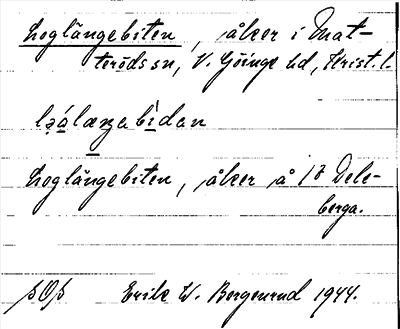 Loglängebiten, åker i Mat-
teröds sn, V. Göinge hd, Krist. l.
Loglängebiten, åker å 13 Dele-
berga.
SOS Erik W. Bergenrud 1944.